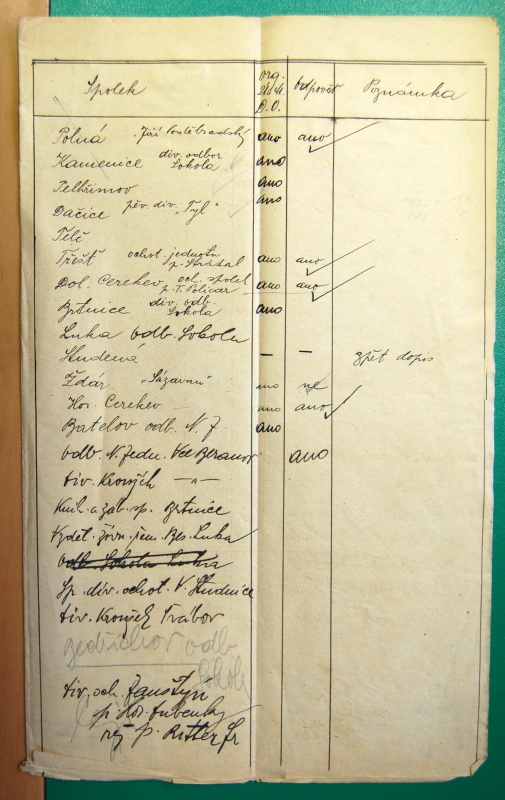 Spolek org. D.O. odpověď Poznámka
Polná "Jiří Poděbradský ano ano
Kamenice div. odbor Sokola ano
Pelhřimov ano
Dačice pěv. div. "Tyl" ano
Telč
Třešť ochot. jednota ano ano
Dol. Cerekev och. spolek ano ano
Brtnice div. odb. Sokola ano
Luka odb. Sokola
Studená — — zpět dopis
Ždár "Sázavan" ano ne
Hor. Cerekev — ano ano
Batelov odb. N.J. ano
odb. N. Jedn. Vel Beranov ano
div. Kroužek — " —
Knih. a záb. sp. Brtnice
Vzdel. živn. řem. Bes. Luka
odb. Sokola Luka
Sp. div. ochot. V. Studnice
div. Kroužek
odb
Sokola
div. och.
p. Hor. Dubenky
p. Ritter